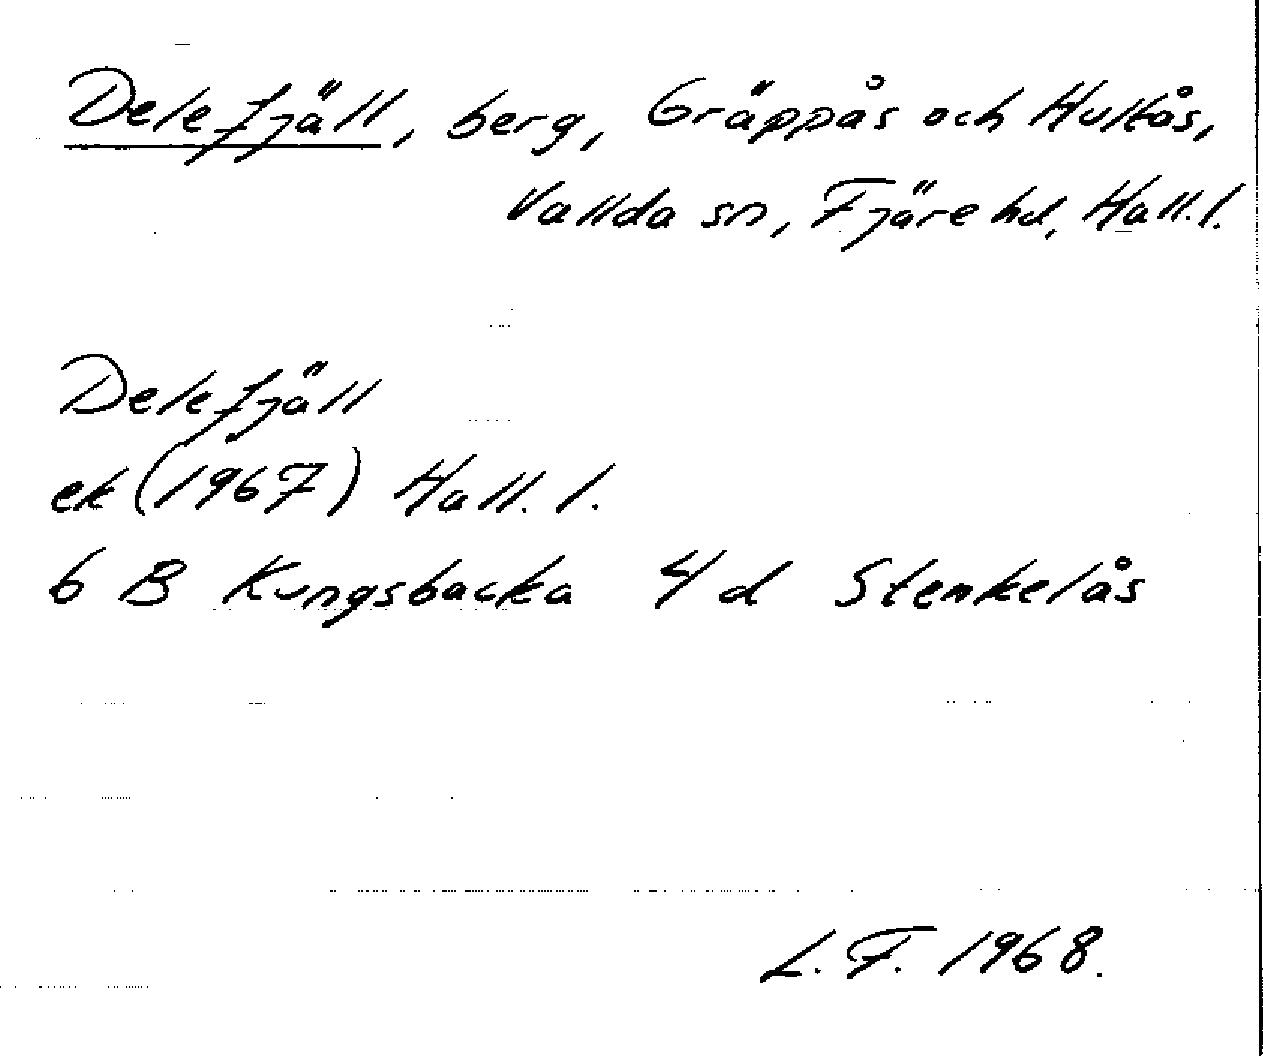 Delefjäll, berg, Gräppås och Hultås,
Vallda sn, Fjäre hd, Hall.l.
Delefjäll
ek (1967) Hall. l.
6 B Kungsbacka 4 d Stenkelås
L. F. 1968.